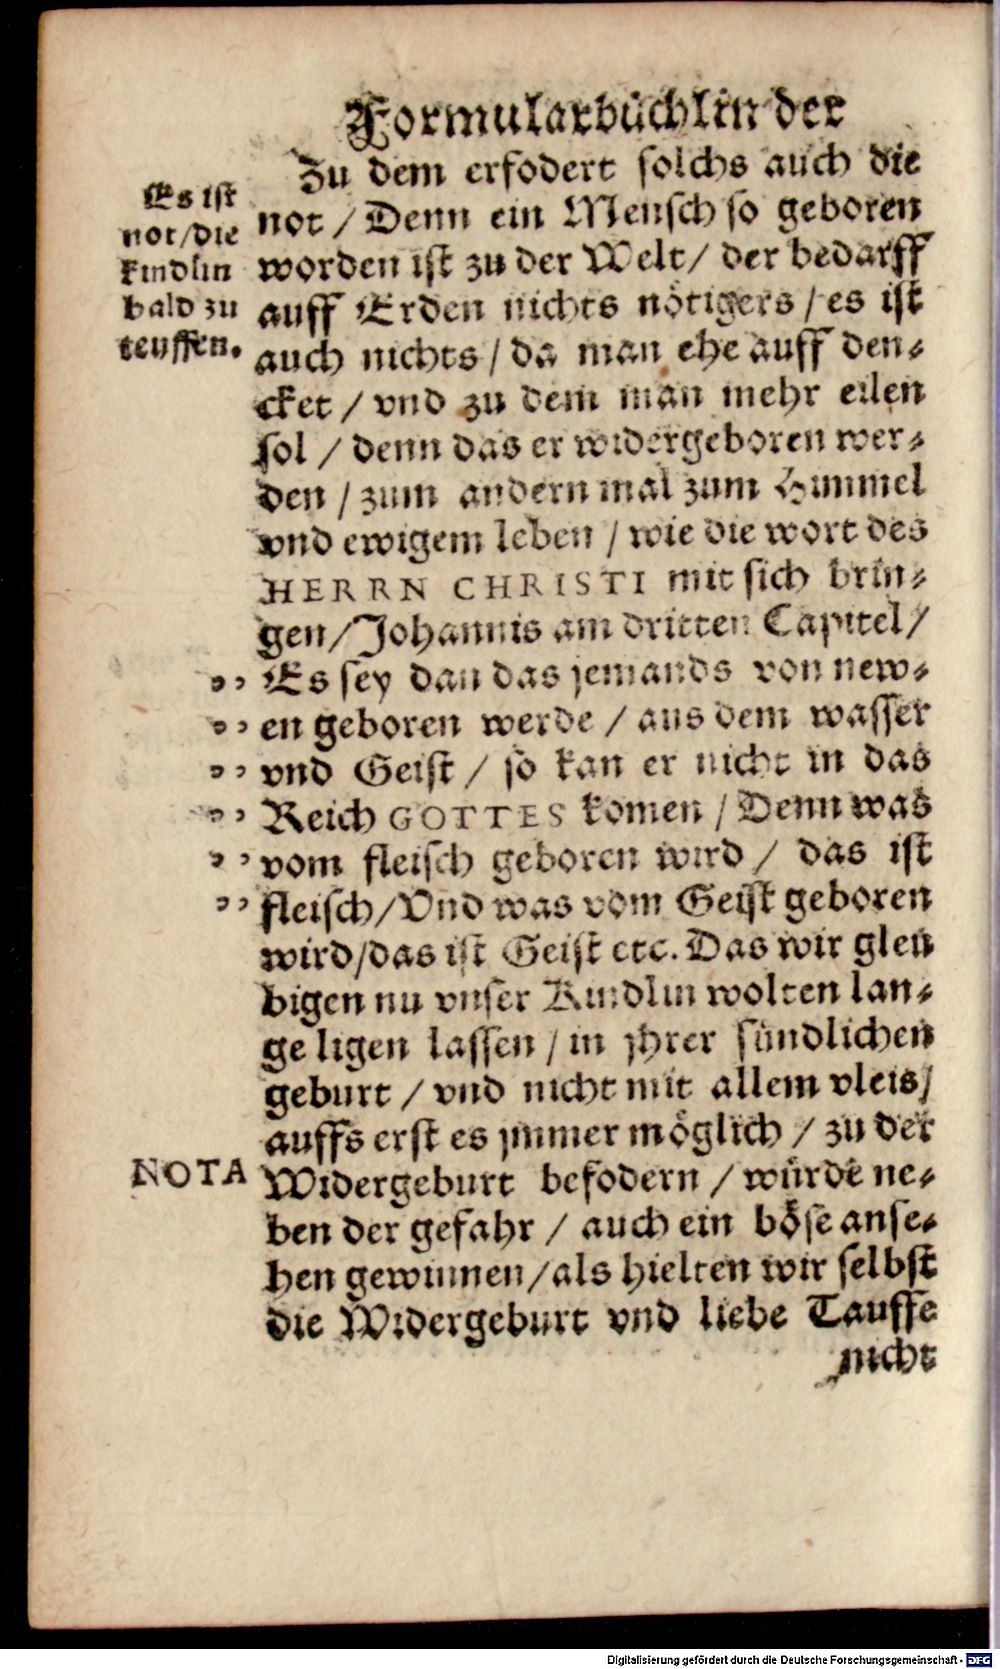 Formularbüchlin der
Zu dem erfodert solchs auch die
Es ist
not / Denn ein Mensch so geboren
not / die
worden ist zu der Welt / der bedarff
kindlin
auff Erden nichts nötigers / es ist
bald zu
auch nichts / da man ehe auff den⸗
teuffen.
cket / vnd zu dem man mehr eilen
sol / denn das er widergeboren wer⸗
den / zum andern mal zum Himmel
vnd ewigem leben / wie die wort des
HERRN CHRISTI mit sich brin⸗
gen / Johannis am dritten Capitel /
„ Es sey dan das jemands von new⸗
„ en geboren werde / aus dem wasser
„ vnd Geist / so kan er nicht in das
„ Reich GOTTES komen / Denn was
„ vom fleisch geboren wird / das ist
„ fleisch / Vnd was vom Geist geboren
wird / das ist Geist etc. Das wir gleu
bigen nu vnser Kindlin wolten lan⸗
ge ligen lassen / in jhrer sündlichen
geburt / vnd nicht mit allem vleis /
auffs erst es jmmer möglich / zu der
NOTA
Widergeburt befodern / würde ne⸗
ben der gefahr / auch ein böse anse⸗
hen gewinnen / als hielten wir selbst
die Widergeburt vnd liebe Tauffe
nicht
Digitalisierung gefördert durch die Deutsche Forschungsgemeinschaft - DFG